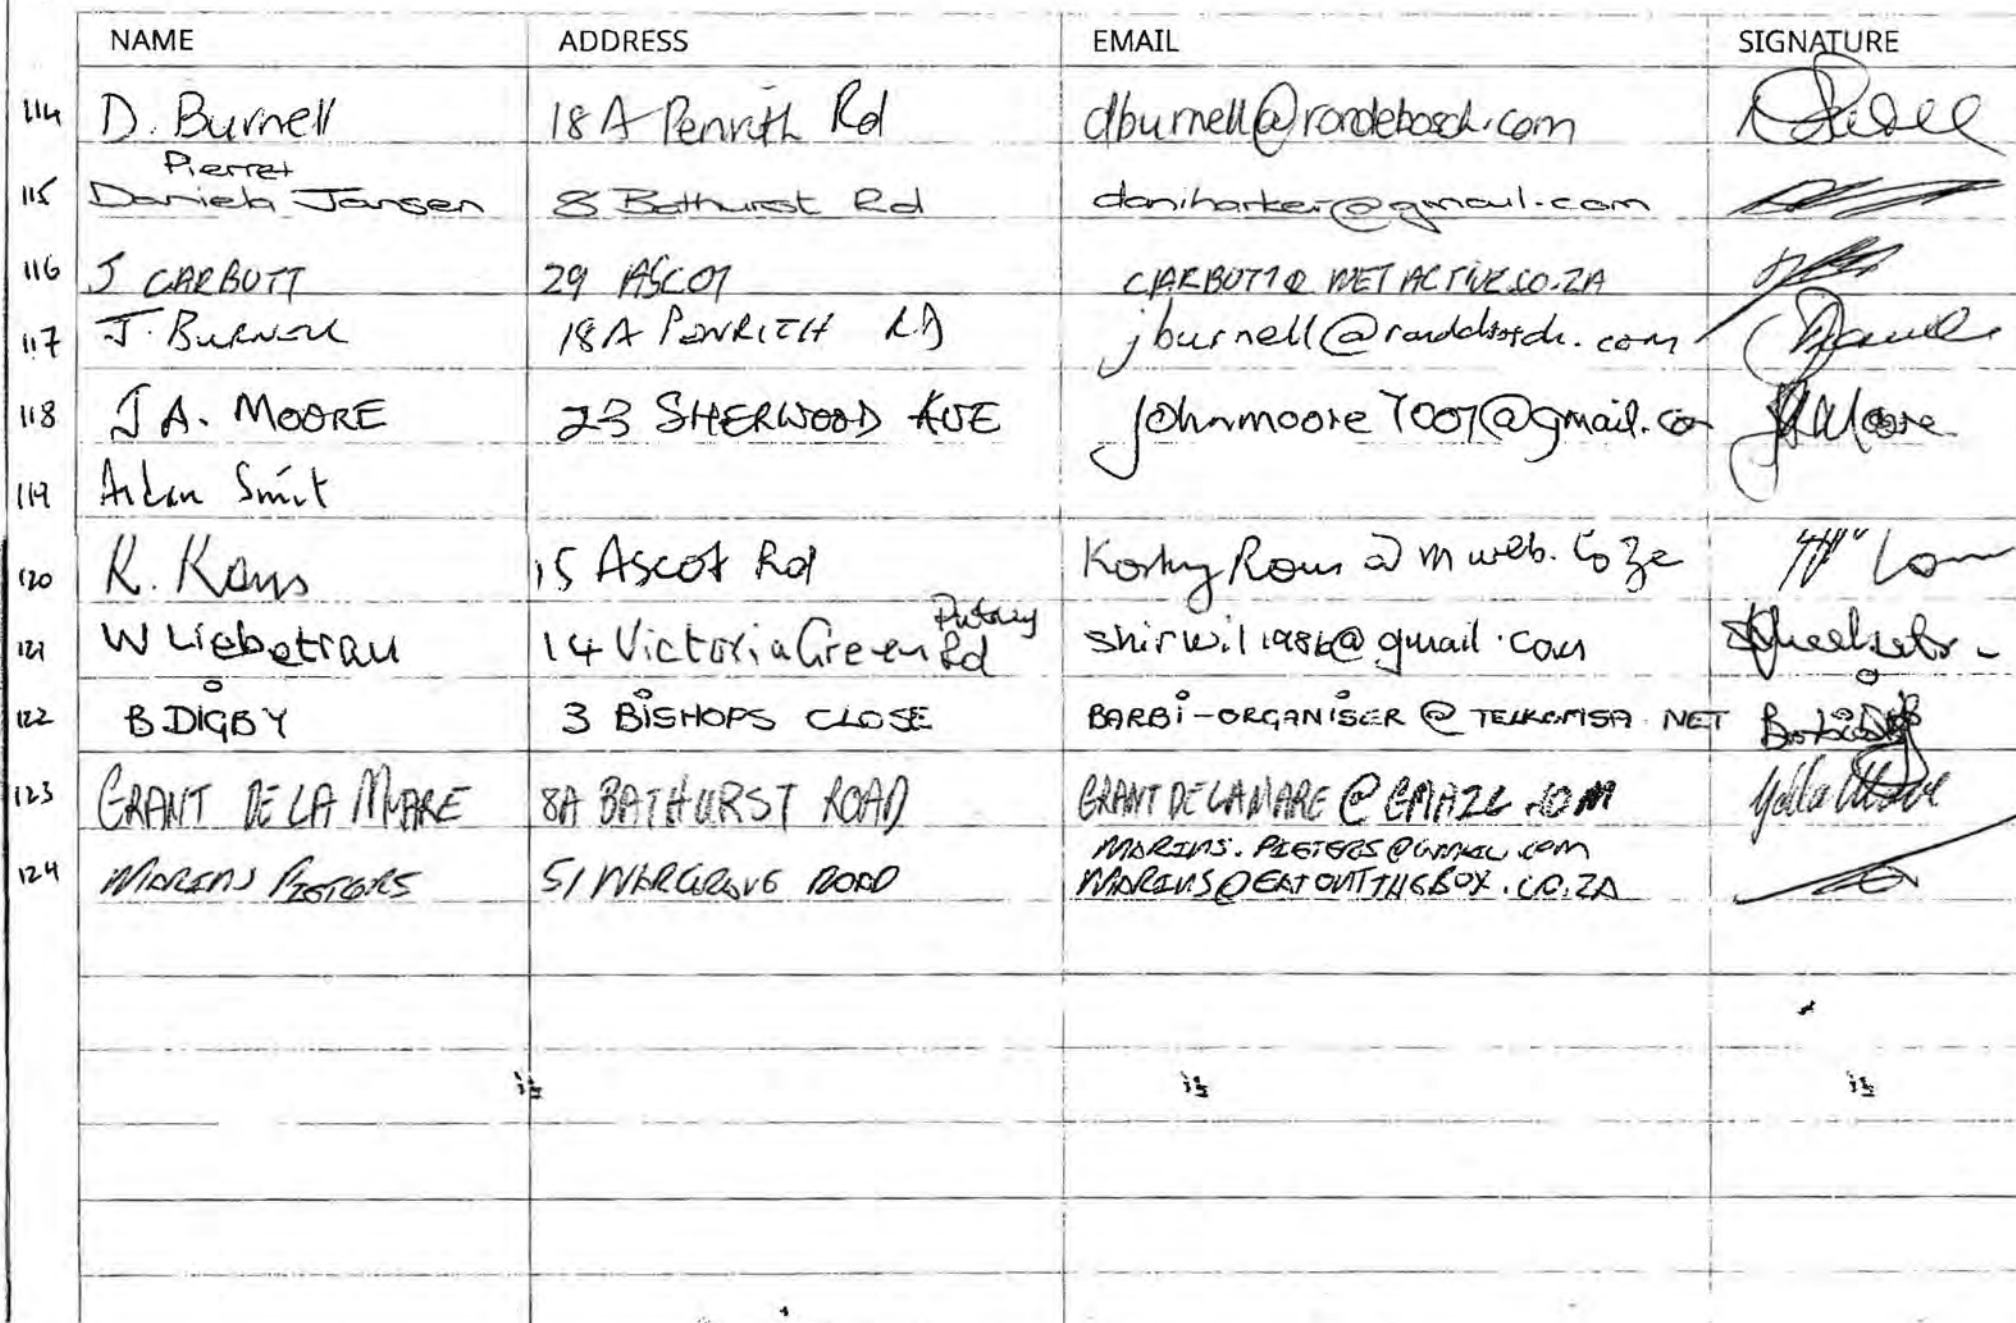 NAME ADDRESS EMAIL SIGNATURE
114 D. Burnell 18A Penrith Rd dburnell@rondebosch.com
Pierre+
115 Daniela Jansen 8 Bathurst Rd daniharker@gmail.com
116 J CARBUTT 29 ASCOT CARBUTT@NETACTIVE.CO.ZA
117 J. BURNELL 18A PENRITH RD jburnell@rondebosch.com
118 J A. MOORE 23 SHERWOOD AVE johnmoore7007@gmail.co JAMoore
119 Smit
120 K. 15 Ascot Rd @mweb.co za
Putney
121 W Liebetrau 14 Victoria Green Rd shirwil1986@gmail.com
122 B DIGBY 3 BISHOPS CLOSE BARBI-ORGANISER@TELKOMSA.NET
123 GRANT DE LA MARE 8A BATHURST ROAD GRANTDELAMARE@GMAIL.COM
MARIUS.PIETERS@GMAIL.COM
124 MARIUS PIETERS 51 WARGRAVE ROAD MARIUS@EATOUTTHEBOX.CO.ZA